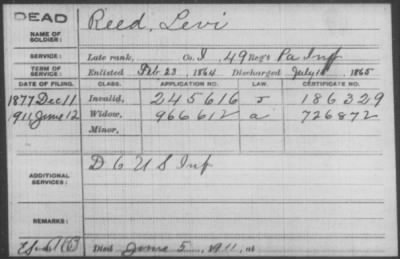 DEAD
NAME OF SOLDIER: Reed, Levi
SERVICE: Late rank, Co. I, 49 Reg't Pa Inf
TERM OF SERVICE: Enlisted Feb 23, 1864 Discharged July 1, 1865
DATE OF FILING. CLASS. APPLICATION NO. LAW. CERTIFICATE NO.
1877 Dec 11 Invalid, 245616 J 186329
1911 June 12 Widow, 966612 a 726872
Minor,
ADDITIONAL SERVICES: D 6 U S Inf
REMARKS:
Died June 5, 1911, at